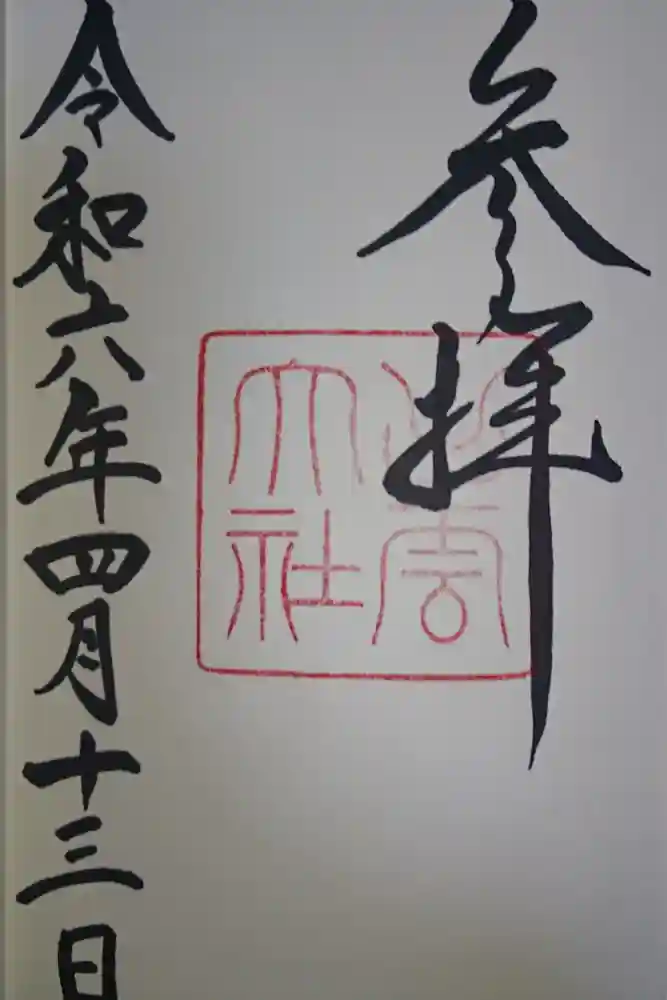 参拝
出雲
大社
令和六年四月十三日